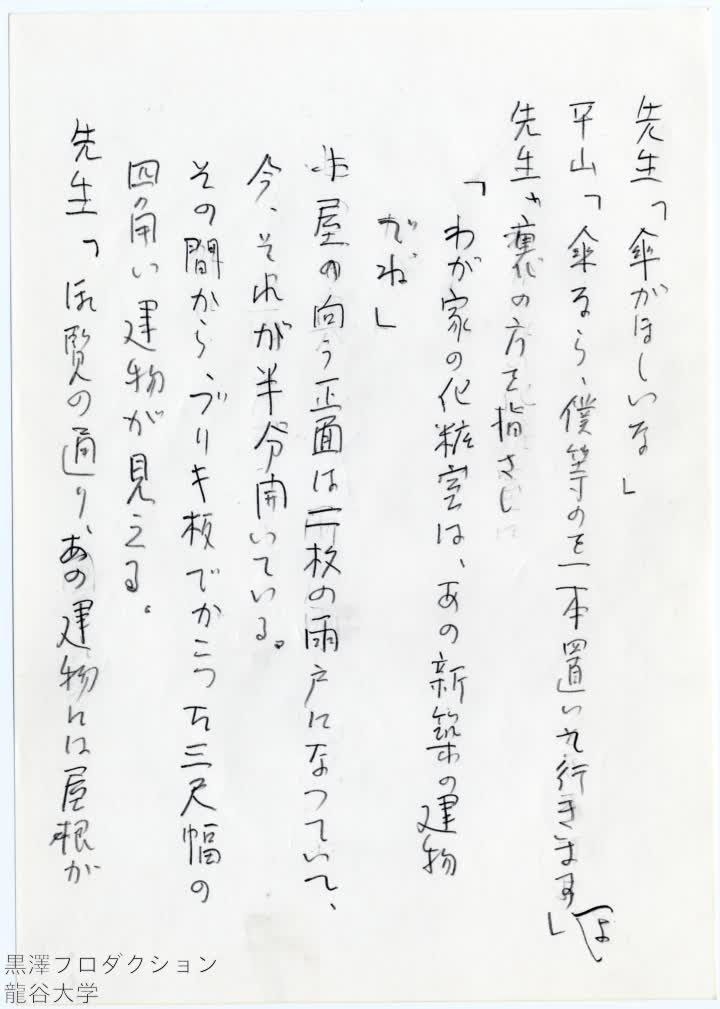 先生「傘がほしいな」
平山「傘なら、僕等のを一本置いて行きますよ」
先生、裏の方を指さし
「わが家の化粧室は、あの新築の建物
だね」
小屋の向う正面は二枚の雨戸になつていて、
今、それが半分開いている。
その間から、ブリキ板でかこつた三尺幅の
四角い建物が見える。
先生「御覧の通り、あの建物には屋根が
黒澤プロダクション
龍谷大学